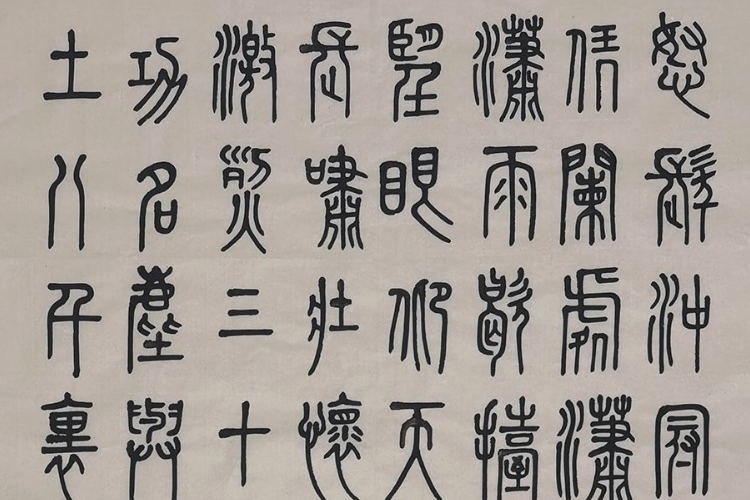 怒髮沖冠
凭闌處瀟
瀟雨歇擡
望眼仰天
長嘯壯懷
激烈三十
功名塵與
土八千裏